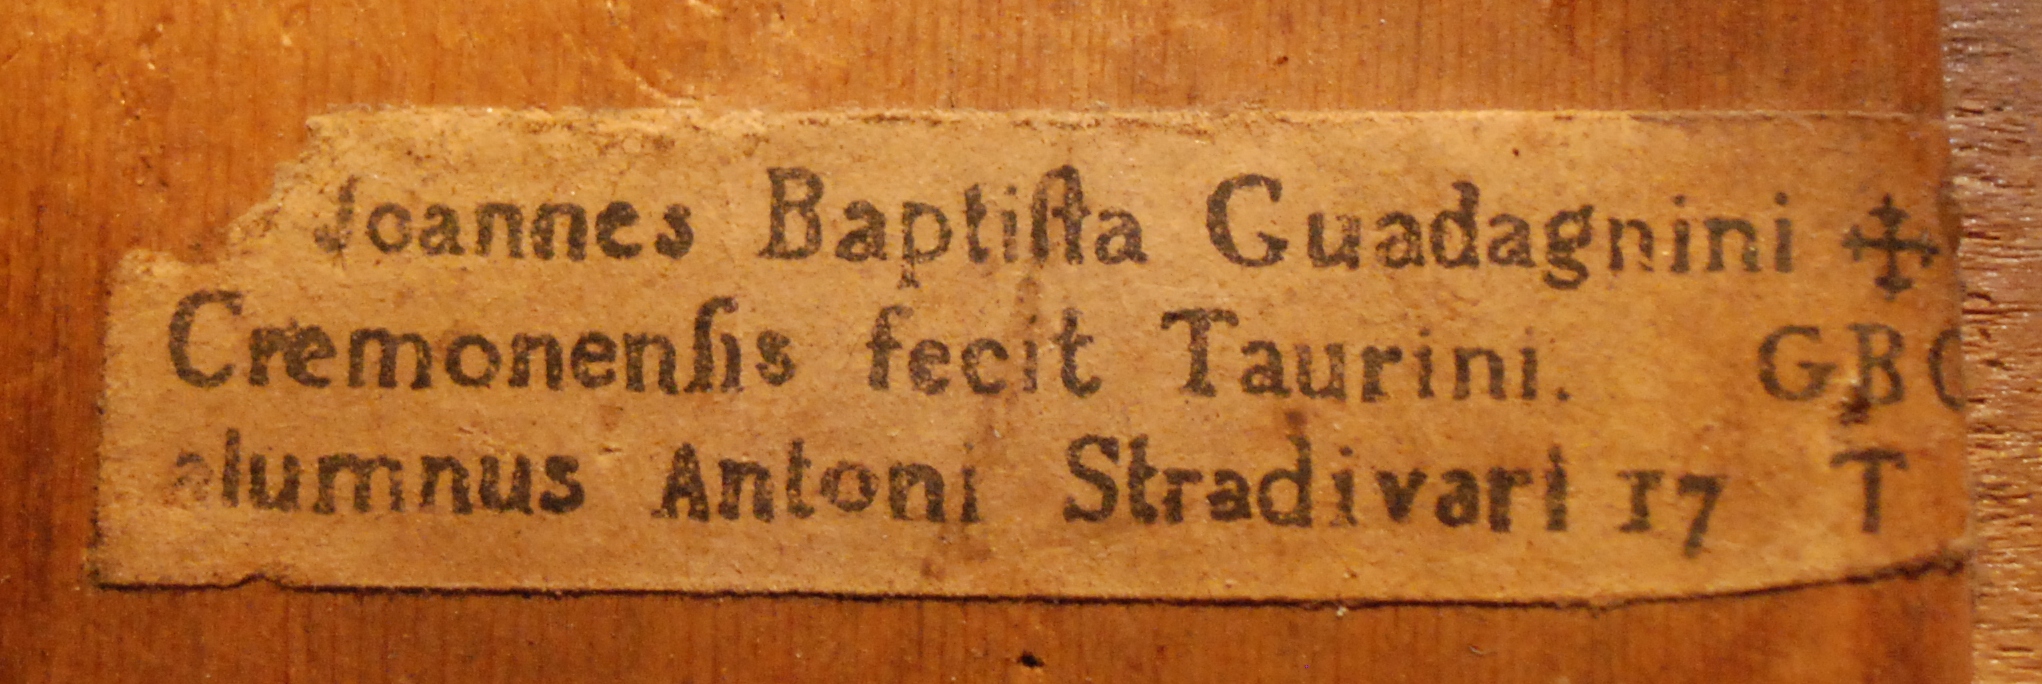 Joannes Baptiſta Guadagnini ✣
Cremonenſis fecit Taurini. GBG
alumnus Antoni Stradivari 17 T